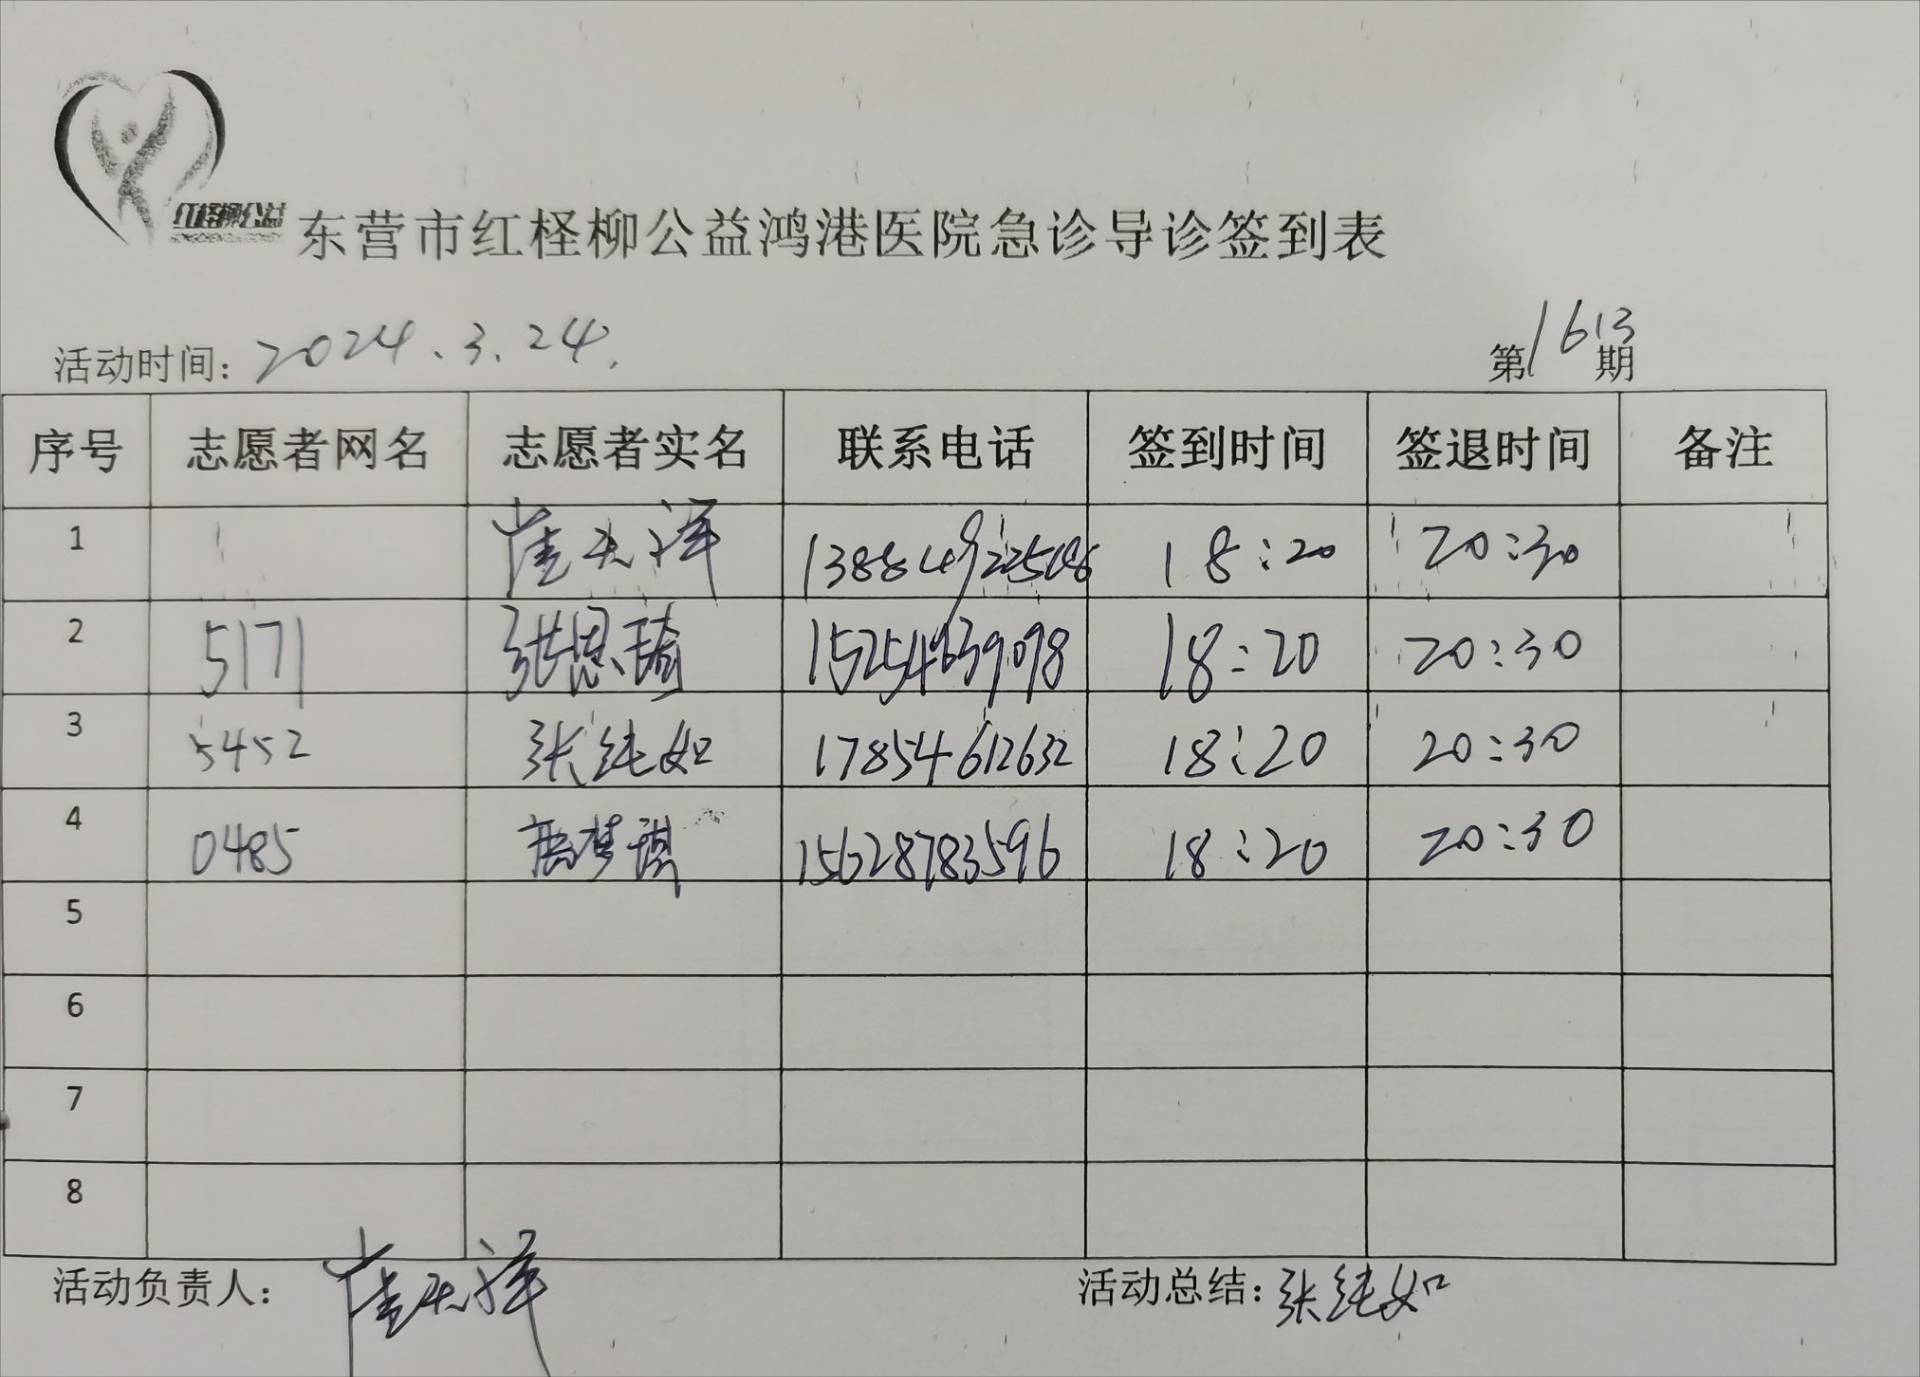 红柽柳公益
东营市红柽柳公益鸿港医院急诊导诊签到表
活动时间: 2024.3.24.
第1613期
序号 志愿者网名 志愿者实名 联系电话 签到时间 签退时间 备注
1 崔天洋 18:20 20:30
2 5171 张思琦 15254639098 18:20 20:30
3 5452 张纯如 17854612632 18:20 20:30
4 0485 梦琪 15628783596 18:20 20:30
5
6
7
8
活动负责人: 崔天洋
活动总结: 张纯如